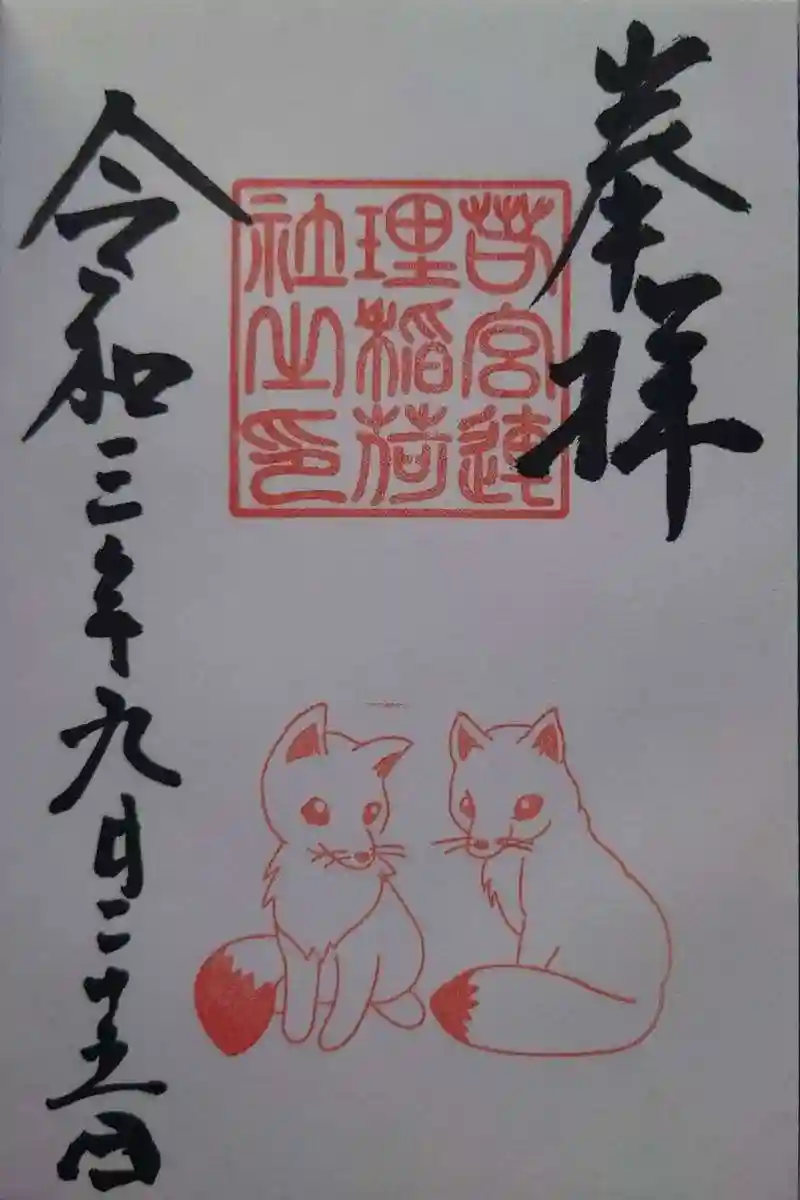 奉拝
若宮連
理稲荷
社之印
令和三年九月二十五日